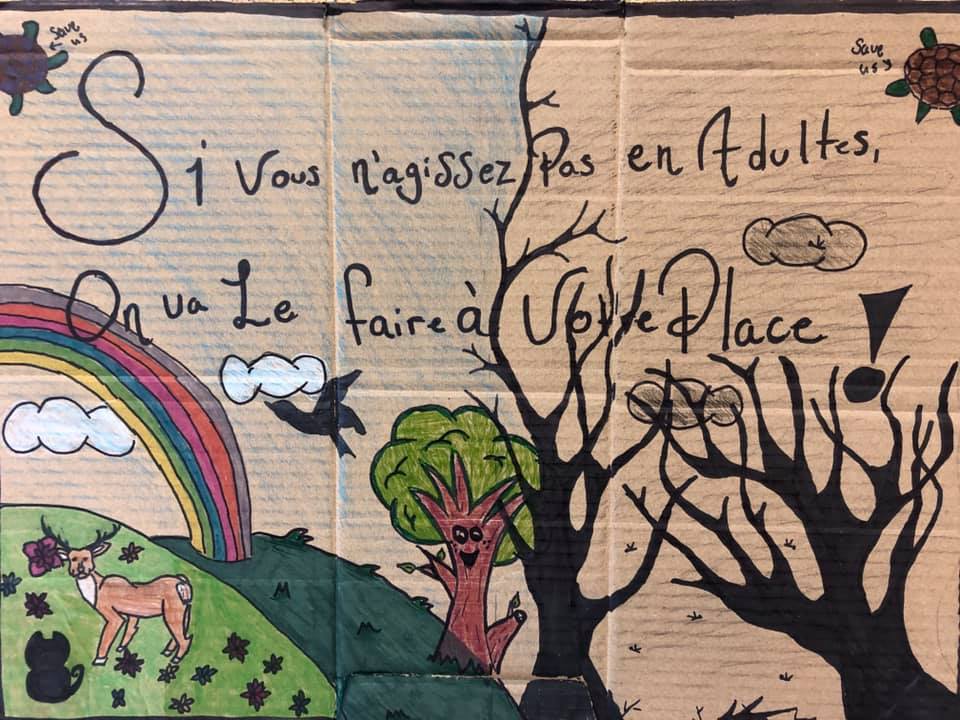 Save
us
Save
us
Si vous n'agissez Pas en Adultes,
On va Le faire à Votre Place !